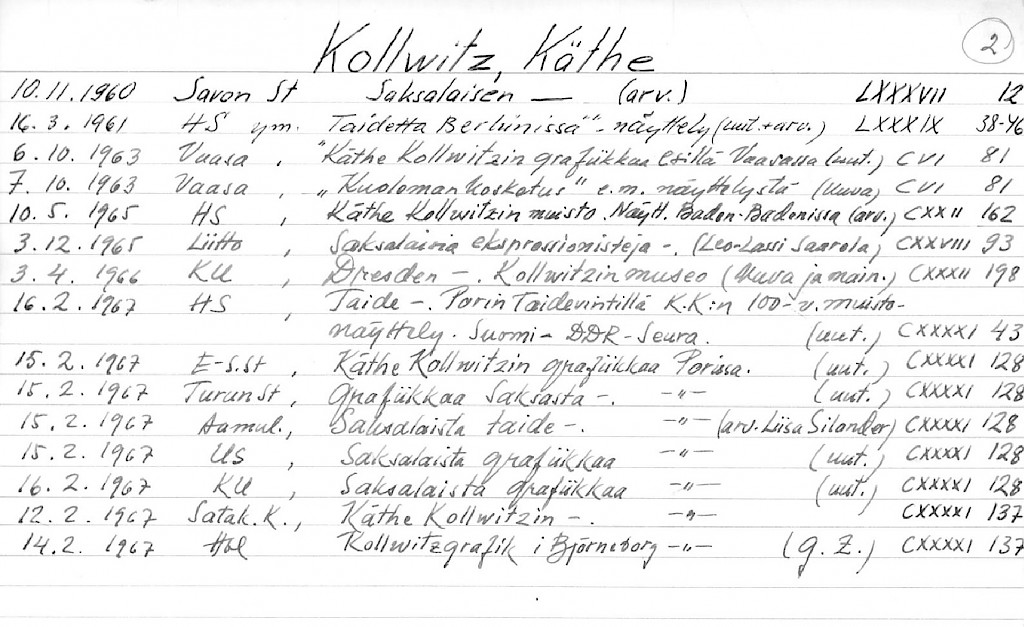 Kollwitz, Käthe 2
10.11.1960 Savon St Saksalaisen — (arv.) LXXXVII 12
16.3.1961 HS ym. Taidetta Berliinissä"- näyttely (uut.+arv.) LXXXIX 38-46
6.10.1963 Vaasa , "Käthe Kollwitzin grafiikkaa esillä Vaasassa (uut.) CVI 81
7.10.1963 Vaasa , "Kuoleman kosketus" e.m. näyttelystä (kuva) CVI 81
10.5.1965 HS , Käthe Kollwitzin muisto. Näytt. Baden-Badenissa (arv.) CXXII 162
3.12.1965 Liitto , Saksalaisia ekspressionisteja -. (Leo-Lassi Saarela) CXXVIII 93
3.4.1966 KU , Dresden -. Kollwitzin museo (kuva ja main.) CXXXII 198
16.2.1967 HS , Taide -. Porin Taidevintillä K.K:n 100-v. muisto-
näyttely. Suomi - DDR-Seura. (uut.) CXXXXI 43
15.2.1967 E-S.St , Käthe Kollwitzin grafiikkaa Porissa. (uut.) CXXXXI 128
15.2.1967 Turun St , Grafiikkaa Saksasta -. -"- (uut.) CXXXXI 128
15.2.1967 Aamul., Saksalaista taide -. -"- (arv. Liisa Silander) CXXXXI 128
15.2.1967 US , Saksalaista grafiikkaa -"- (uut.) CXXXXI 128
16.2.1967 KU , Saksalaista grafiikkaa -"- (uut.) CXXXXI 128
12.2.1967 Satak.K., Käthe Kollwitzin -. -"- CXXXXI 137
14.2.1967 Hbl Kollwitzgrafik i Björneborg -"- (G.Z.) CXXXXI 137